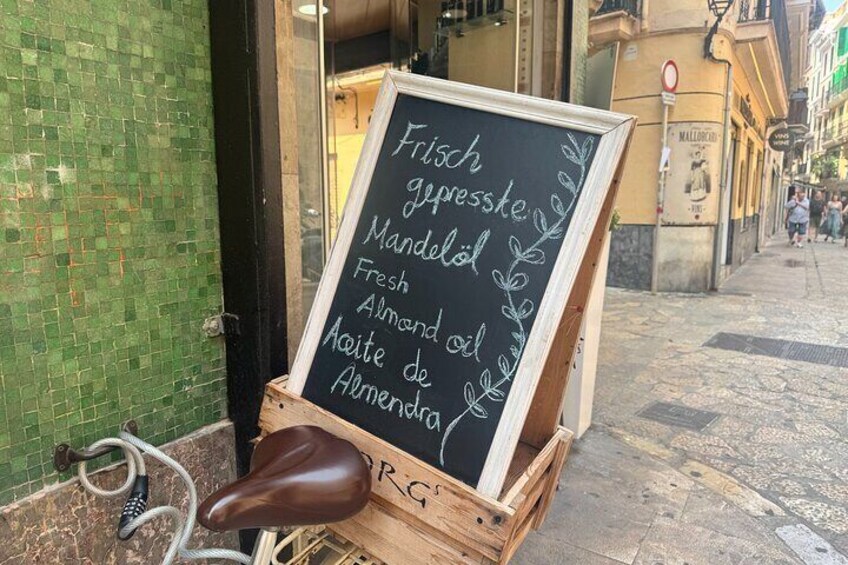 Frisch
gepresste
Mandelöl
Fresh
Almond oil
Aceite de
Almendra
MALLORCAN
VINS